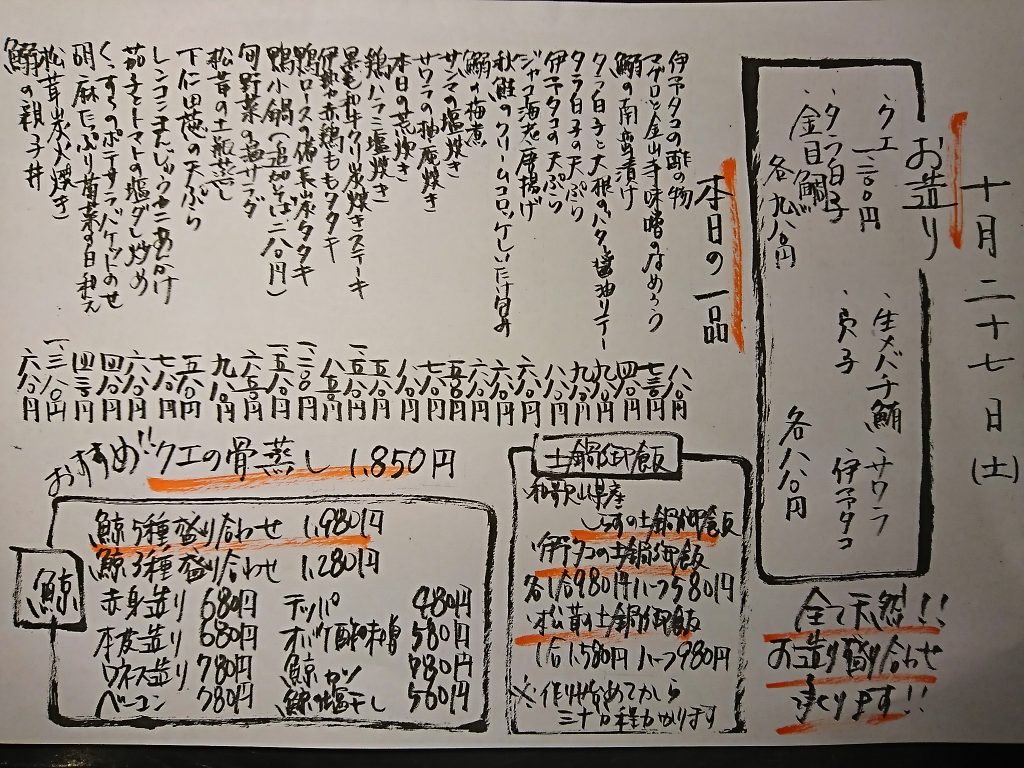 十月二十七日(土)
お造り
・クエ 一二〇〇円
・タラ白子
・金目鯛
各九八〇円
・生メバチ鮪 ・サワラ
・貝子 ・伊予タコ
各八八〇円
全て天然!!
お造り盛り合わせ
承ります!!
本日の一品
伊予タコの酢の物 八八〇円
マグロと金山寺味噌のなめろう 七三〇円
鰯の南蛮漬け 四八〇円
タラ白子と大根のバター醤油ソテー 九八〇円
タラ白子の天ぷら 九八〇円
伊予タコの天ぷら 八八〇円
ジャコ海老唐揚げ 六八〇円
秋鮭のクリームコロッケしいたけ包み
鰯の梅煮
サンマの塩焼き
サワラの柚庵焼き
本日の荒炊き
鶏ハラミ塩焼き
黒毛和牛クリ炭焼きステーキ
伊勢赤鶏ももタタキ
鴨ロースの備長炭タタキ
鴨小鍋(追加そば二八〇円)
旬野菜の塩サラダ
松茸の土瓶蒸し
下仁田葱の天ぷら
レンコンまんじゅうカニあんかけ 七八〇円
茄子とトマトの塩ダレ炒め 六八〇円
くずらのポテサラバケットのせ 四八〇円
胡麻たっぷり菊菜の白和え 四三〇円
松茸炭火焼き 一、三八〇円
鰯の親子丼 六八〇円
おすすめ!!クエの骨蒸し 1,850円
土鍋御飯
・和歌山県産
しらすの土鍋御飯
・伊予タコの土鍋御飯
各1合980円ハーフ580円
・松茸の土鍋御飯
1合1,580円ハーフ980円
※作り始めてから
三十分程かかります
鯨
鯨5種盛り合わせ 1,980円
鯨3種盛り合わせ 1,280円
赤身造り 680円 テッパ 480円
本皮造り 680円 オバケ酢味噌 580円
ウネス造り 780円 鯨カツ 780円
ベーコン 780円 鯨塩干し 560円